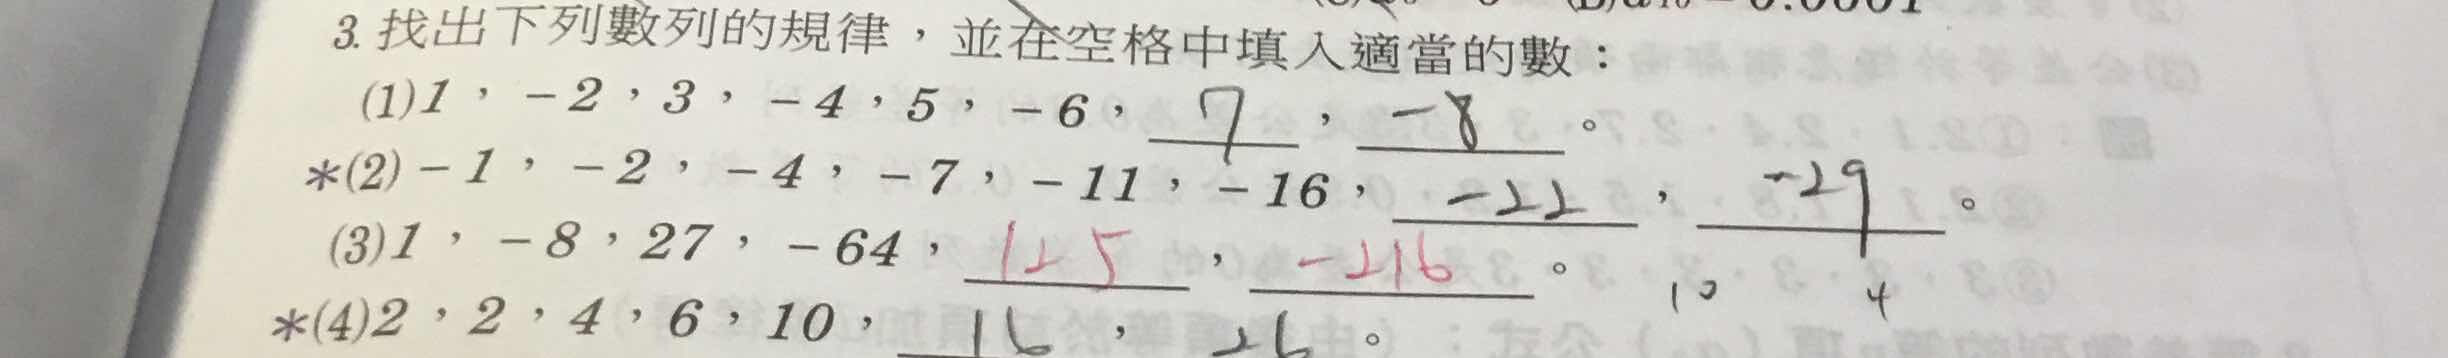 3. 找出下列數列的規律，並在空格中填入適當的數：
(1) 1，-2，3，-4，5，-6，7，-8。
*(2) -1，-2，-4，-7，-11，-16，-22，-29。
(3) 1，-8，27，-64，125，-216。
10 4
*(4) 2，2，4，6，10，16，26。